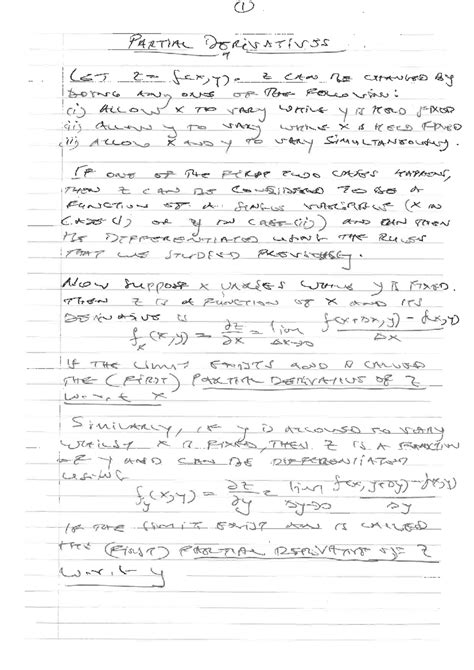 (1)
PARTIAL DERIVATIVES
LET Z = f(x,y). Z CAN BE CHANGED BY
DOING ANY ONE OF THE FOLLOWING:
(i) ALLOW X TO VARY WHILE Y IS HELD FIXED
(ii) ALLOW Y TO VARY WHILE X IS HELD FIXED
(iii) ALLOW X AND Y TO VARY SIMULTANEOUSLY.
IF ONE OF THE FIRST TWO CASES HAPPENS,
THEN Z CAN BE CONSIDERED TO BE A
FUNCTION OF A SINGLE VARIABLE (X IN
CASE (i) OR Y IN CASE (ii)) AND CAN THEN
BE DIFFERENTIATED USING THE RULES
THAT WE STUDIED PREVIOUSLY.
NOW SUPPOSE X VARIES WHILE Y IS FIXED.
THEN Z IS A FUNCTION OF X AND ITS
DERIVATIVE IS
f_x(x,y) = ∂z/∂x = lim Δx→0 f(x+Δx,y) - f(x,y) / Δx
IF THE LIMIT EXISTS AND IS CALLED
THE (FIRST) PARTIAL DERIVATIVE OF Z
w.r.t X
SIMILARLY, IF Y IS ALLOWED TO VARY
WHILST X IS FIXED, THEN Z IS A FUNCTION
OF Y AND CAN BE DIFFERENTIATED
USING
f_y(x,y) = ∂z/∂y = lim Δy→0 f(x,y+Δy) - f(x,y) / Δy
IF THE LIMIT EXIST AND IS CALLED
THE (FIRST) PARTIAL DERIVATIVE OF Z
w.r.t y